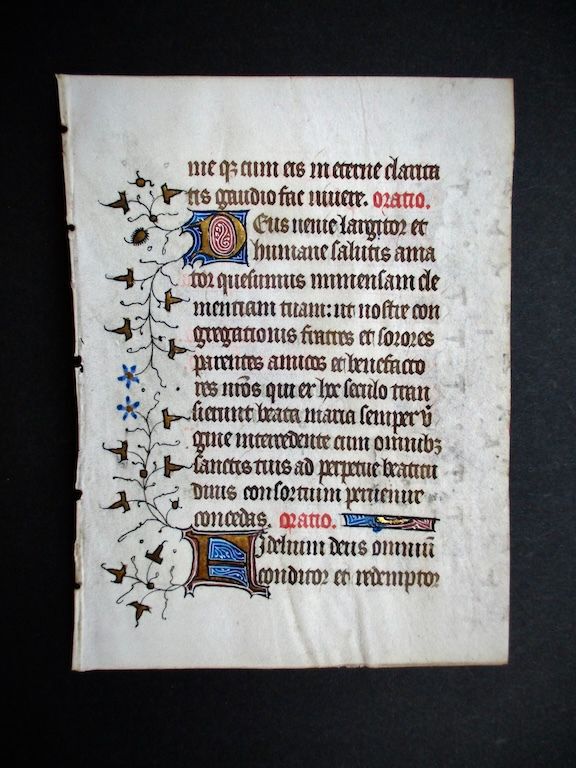 me q; cum eis in eterne clarita
tis gaudio fac uiuere. oratio.
Deus uenie largitor et
humane salutis ama
tor quesumus immensam cle
menciam tuam: ut nostre con
gregationis fratres et sorores
parentes amicos et benefacto
res nr̄os qui ex hoc seculo tran
sierunt beata maria semper v̄
gine intercedente cum omnibz
sanctis tuis ad perpetue beatitu
dinis consortium peruenire
concedas. oratio.
Fidelium deus omniū
conditor et redemptor